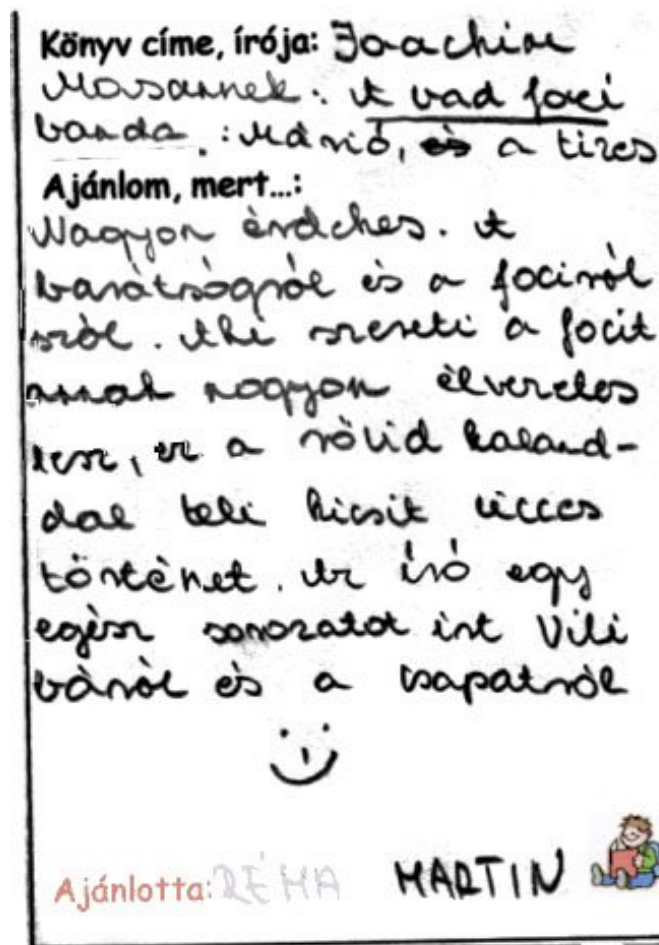 Könyv címe, írója: Joachim
Masannek: A vad foci
banda.: Márió, és a tizes
Ajánlom, mert...:
Nagyon érdekes. A
barátságról és a fociról
szól. Aki szereti a focit
annak nagyon élvezetes
lesz, ez a rövid kaland-
dal teli kicsit vicces
történet. Az író egy
egész sorozatot írt Vili
báról és a csapatról
Ajánlotta: RÉMA MARTIN